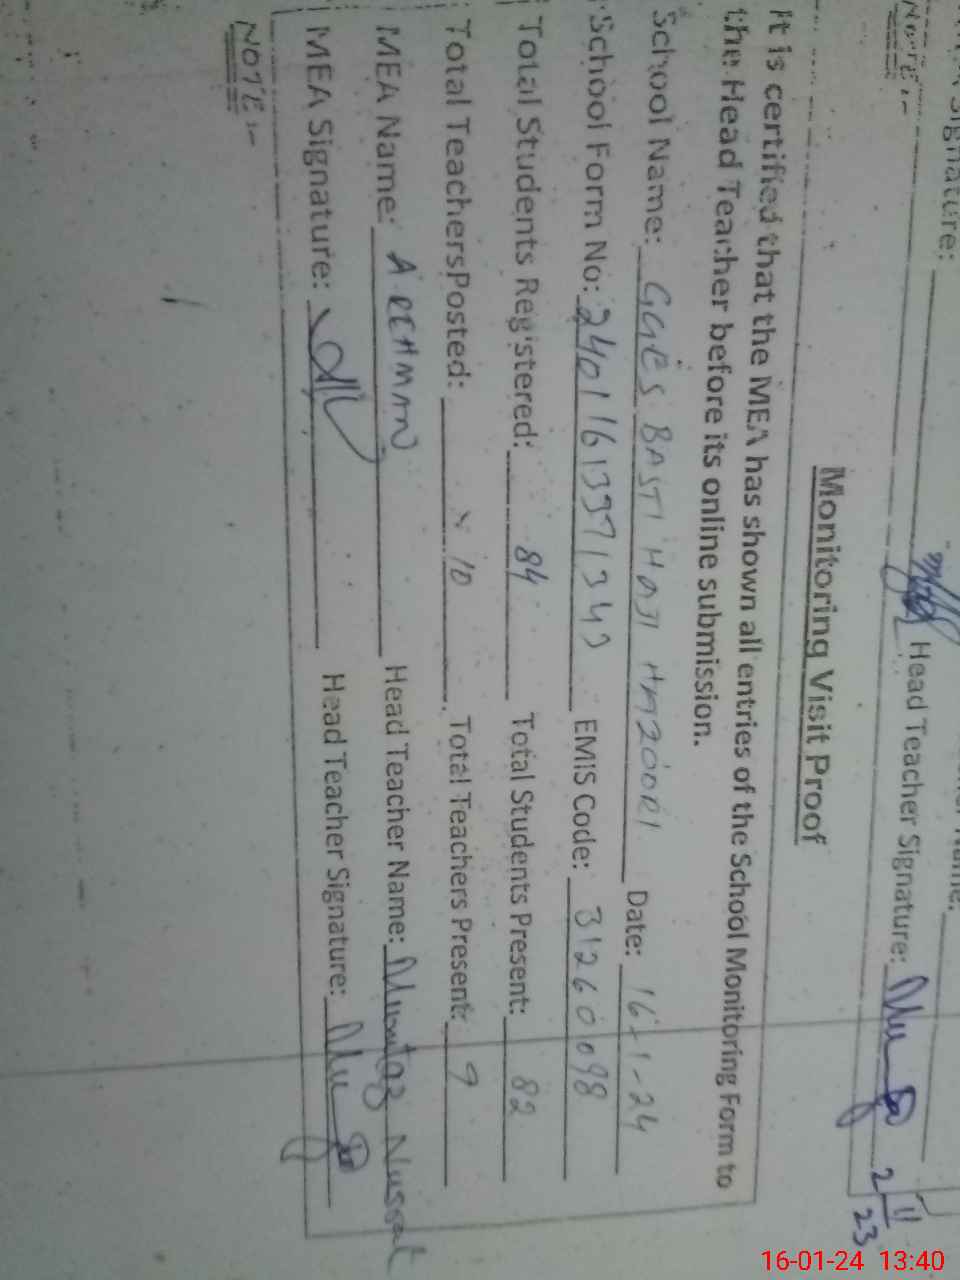 Signature:
Head Teacher Signature:
NOTE :-
2/11/23
Monitoring Visit Proof
It is certified that the MEA has shown all entries of the School Monitoring Form to
the Head Teacher before its online submission.
School Name: GGES BASTI HAJI Date: 16-1-24
School Form No: EMIS Code: 31260098
Total Students Registered: 84 Total Students Present: 82
Total TeachersPosted: 10 Total Teachers Present: 9
MEA Name: A REHMAN Head Teacher Name: Mumtaz Nusrat
MEA Signature: Head Teacher Signature:
NOTE :-
16-01-24 13:40